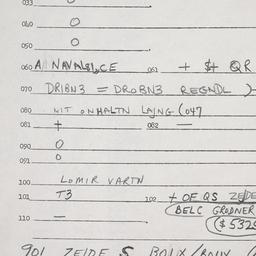 033
040 O
050 O
060 A NAVALSI,CE 061 + $+ QR
070 DRIBN3 = DROBN3 REGNDL )-
080 NIT ONHALTN LAJNG (047
081 + 082 —
090 O
091 O
100 LOMIR VARTN
101 T3 102 + OF QS ZEJDE
(BELC GRODNER
110 — ($532
901 ZEIDE S